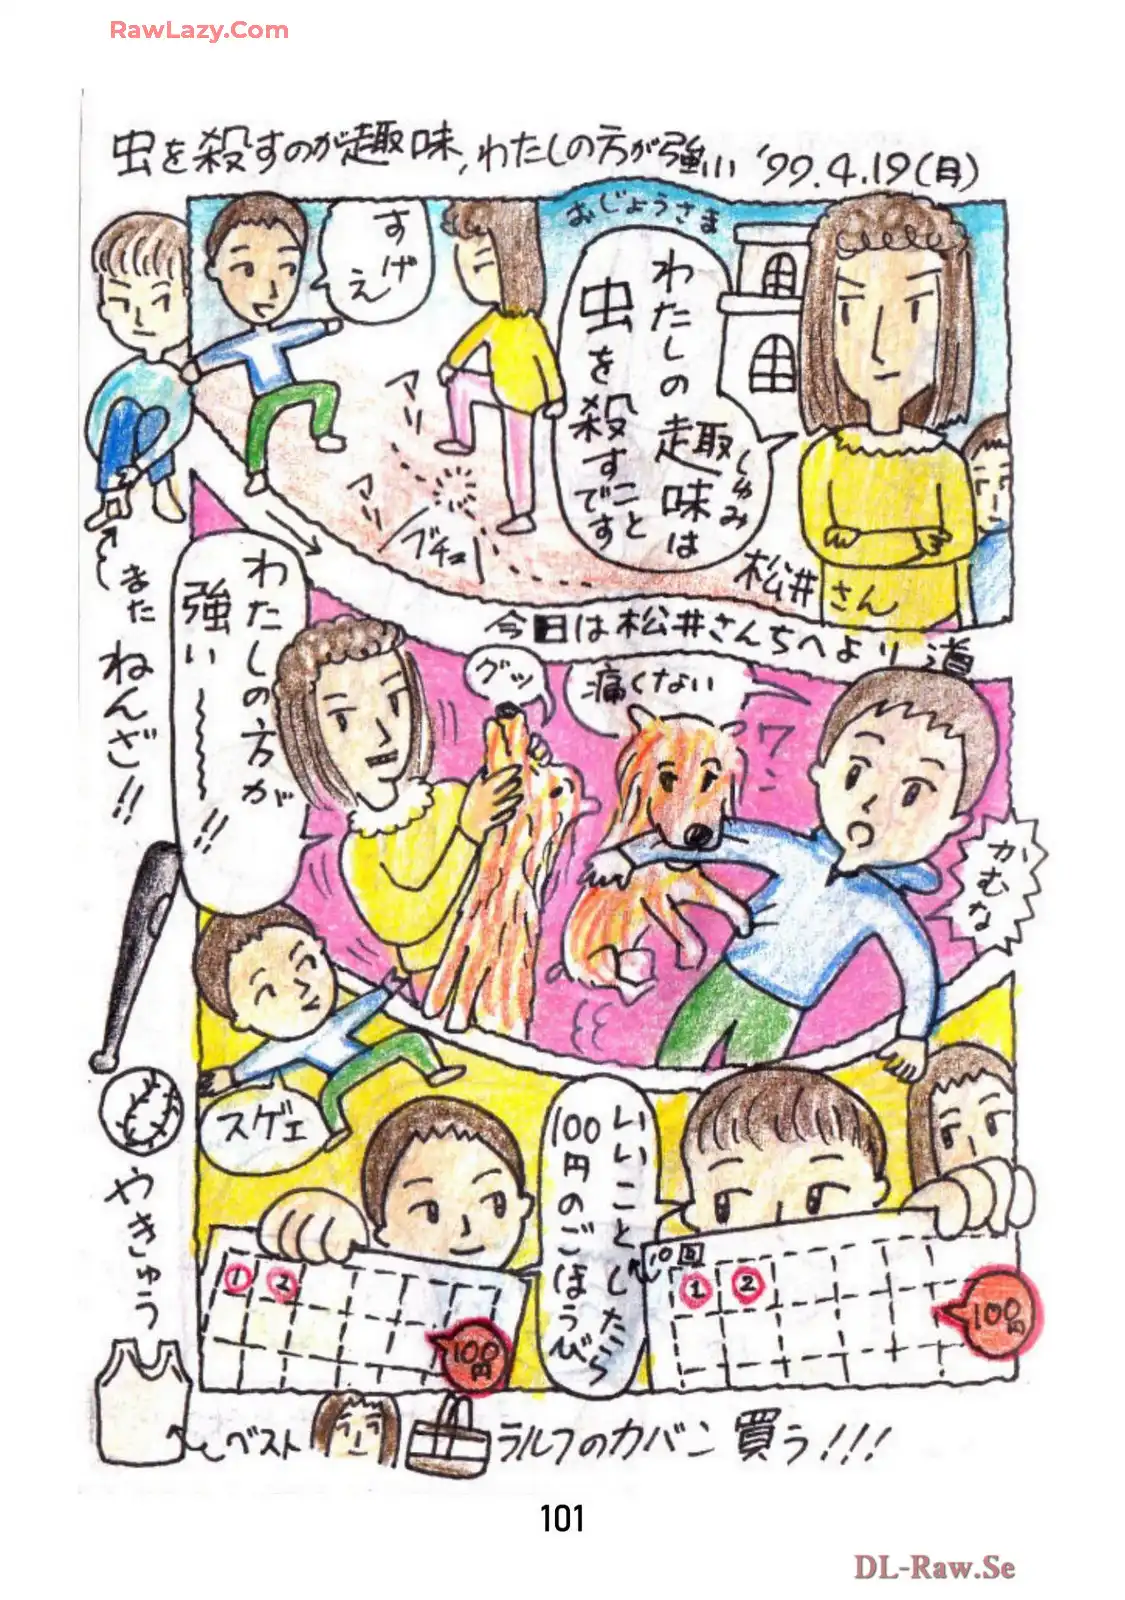 RawLazy.Com
虫を殺すのが趣味,わたしの方が強い '99.4.19(月)
おじょうさま
わたしの趣味は
しゅみ
虫を殺すことです
すげえ
アリ
アリ
ブチュー
松井さん
今日は松井さんちへより道
また
ねんざ!!
わたしの方が
強い〜〜!!
グッ
痛くない
ワン
かむな
スゲェ
やきゅう
いいことしたら
100円のごほうび
1
2
100円
10回
1
2
100円
ベスト
ラルフのカバン 買う!!!
101
DL-Raw.Se